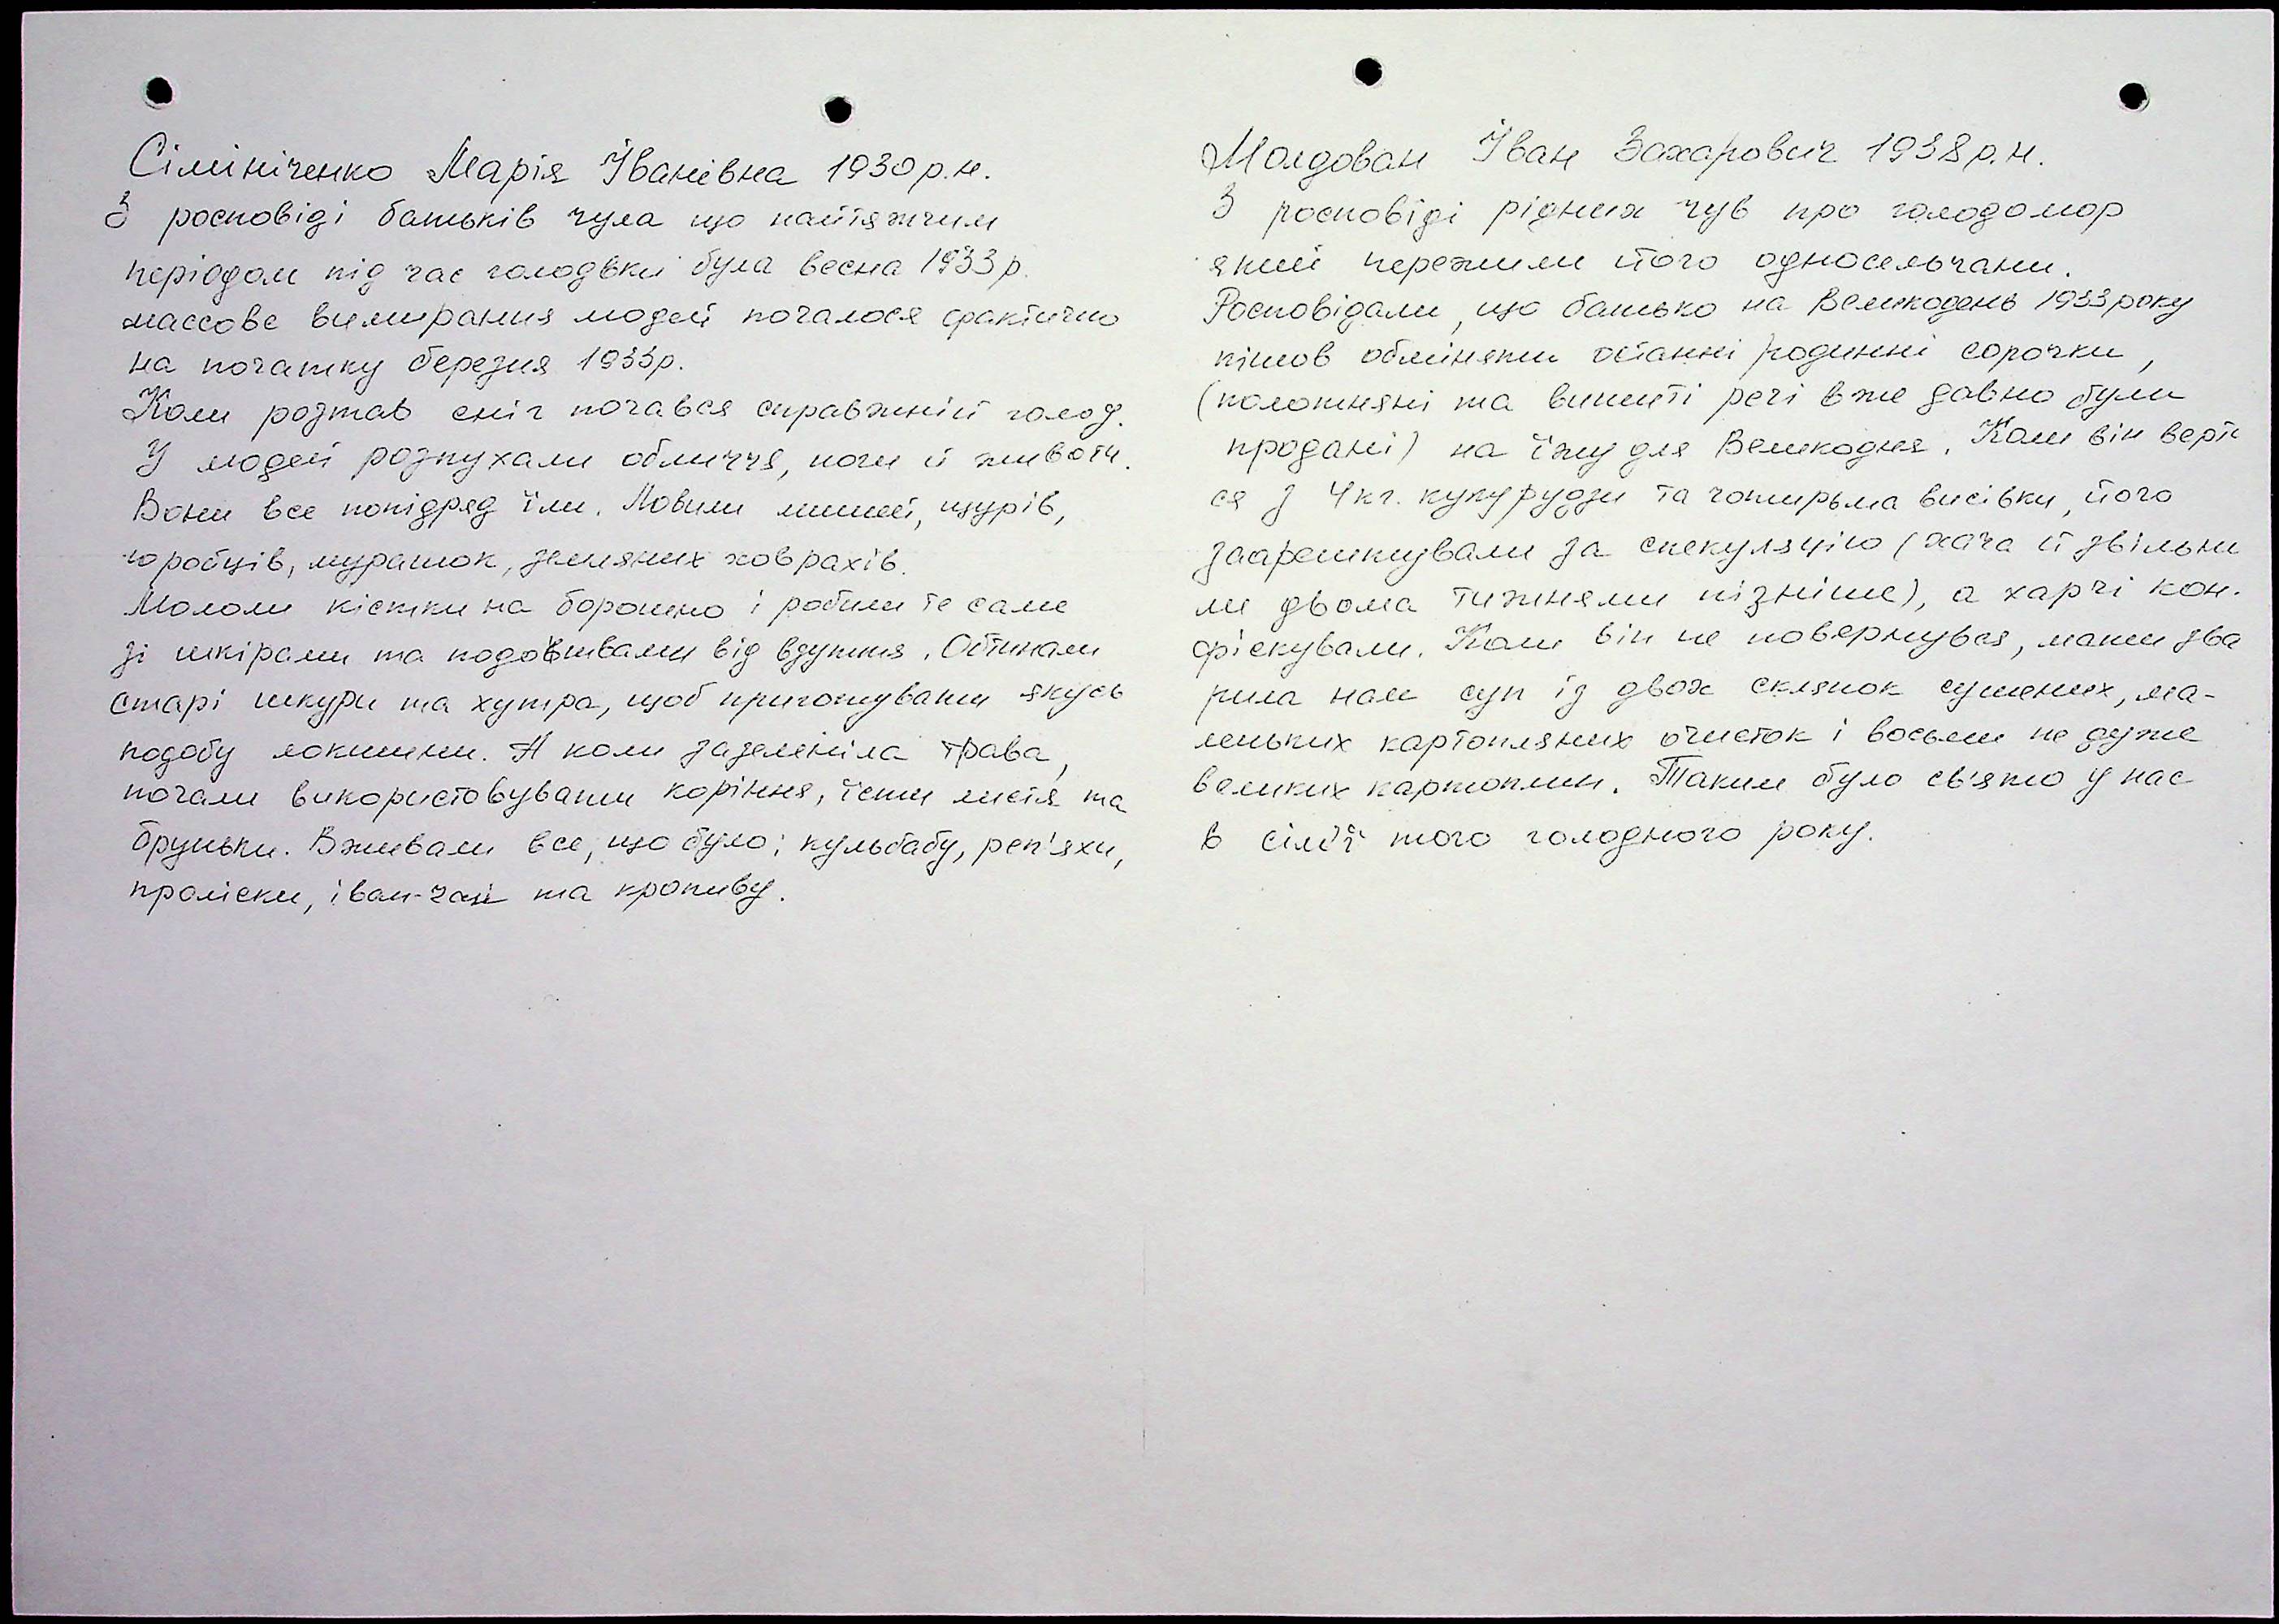 Сімініченко Марія Іванівна 1930 р.н.
З росповіді батьків чула що найтяжчим
періодом під час голодвки була весна 1933 р.
массове вимирання людей почалося фактично
на початку березня 1933р.
Коли розтав сніг почався справжній голод.
У людей розпухали обличчя, ноги й животи.
Вони все попідряд їли. Ловили мишей, щурів,
горобців, мурашок, земляних ховрахів.
Мололи кістки на борошно і робили те саме
зі шкірами та подошвами від взуття. Обтинали
старі шкури та хутра, щоб приготувати якусь
подобу локшини. А коли зазеленіла трава,
почали використовувати коріння, їсти листя та
бруньки. Вживали все, що було; кульбабу, реп'яхи,
проліски, іван-чай та кропиву.
Молдован Іван Захарович 1938 р.н.
З росповіді рідних чув про голодомор
який пережили його односельчани.
Росповідали, що батько на Великодень 1933 року
пішов обміняти останні родинні сорочки,
(полотняні та вишиті речі вже давно були
продані) на їжу для Великодня. Коли він верта
ся з 4 кг. кукурудзи та чотирьма висівки, його
заарештували за спекуляцію (хача й звільни
ли двома тижнями пізніше), а харчі кон-
фіскували. Коли він не повернувся, мати зва
рила нам суп із двох склянок сушених, ма-
леньких картопляних очисток і восьми не дуже
великих картоплин. Таким було свʼято у нас
в сім'ї того голодного року.